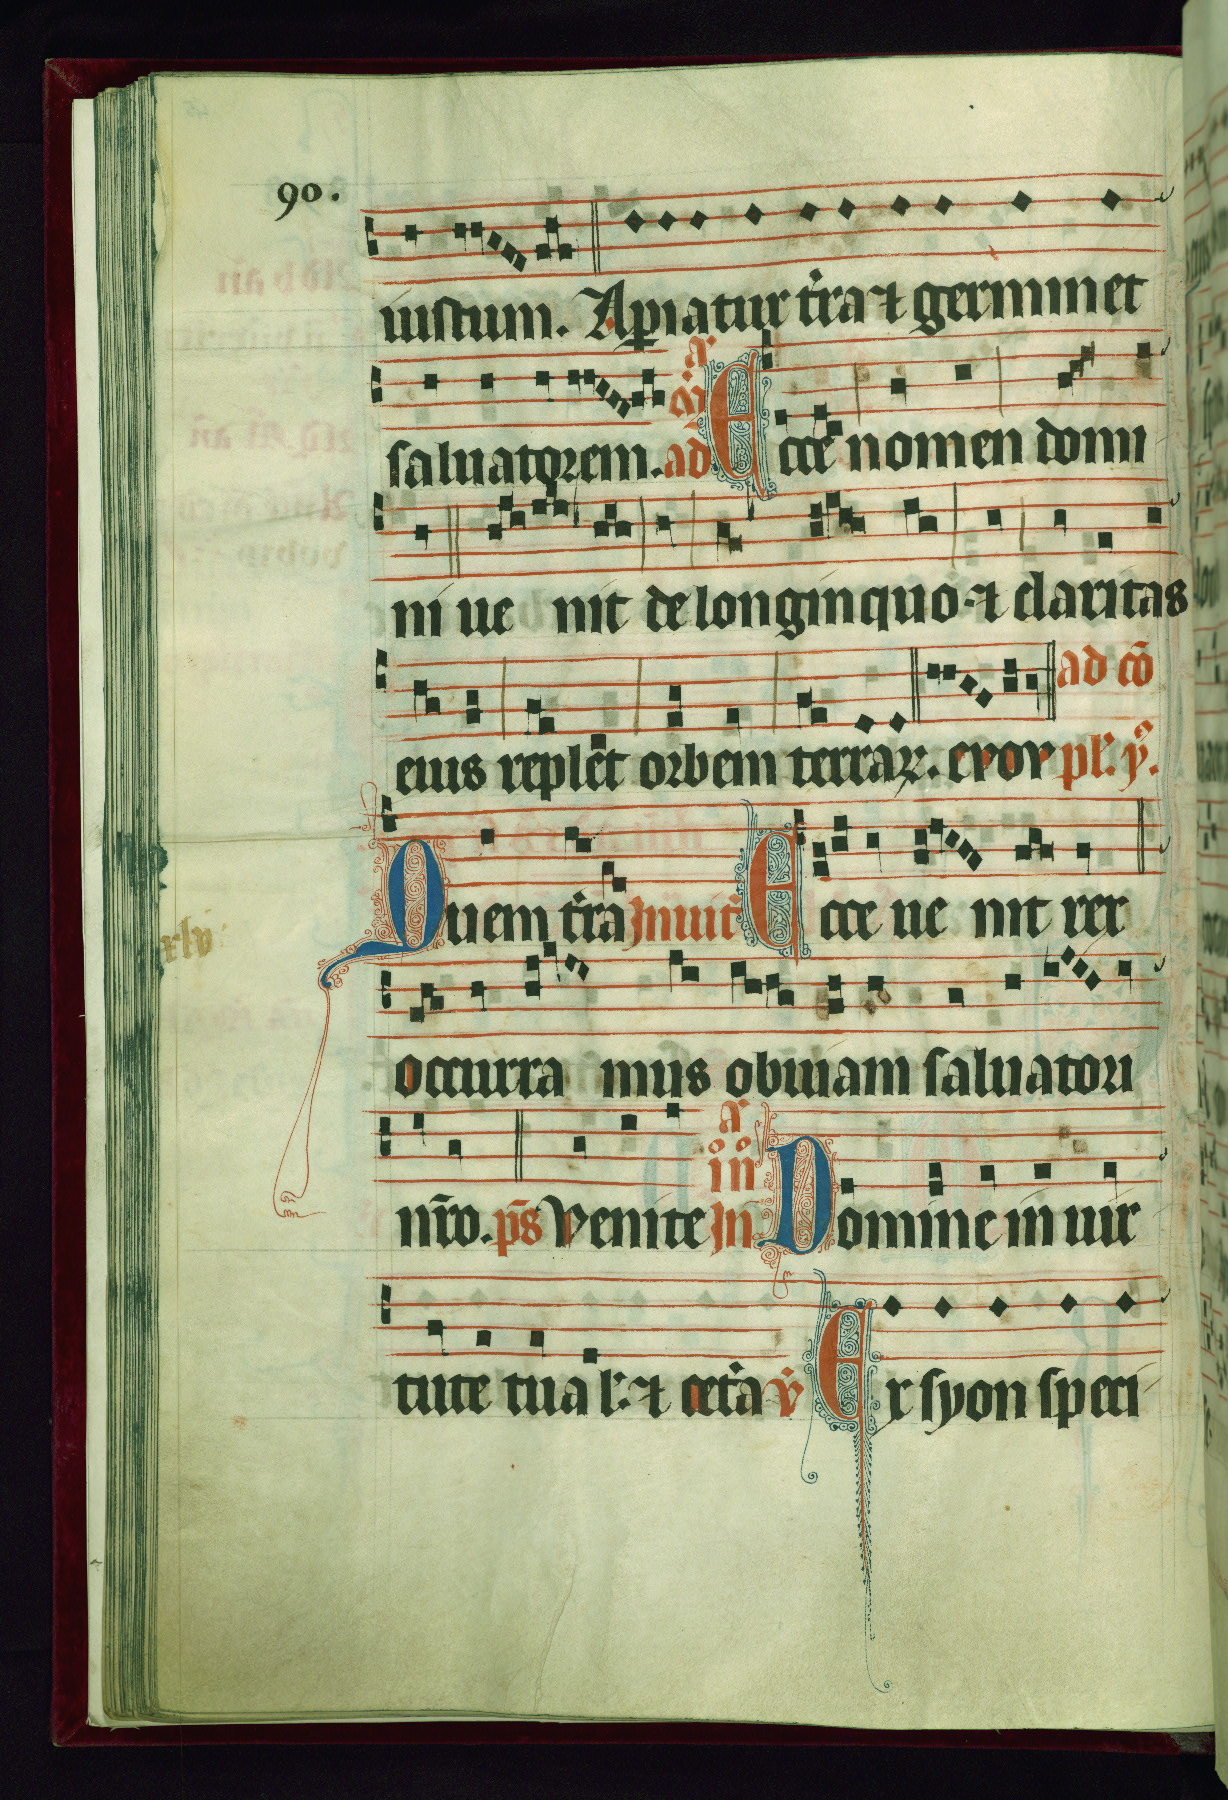 90.
iustum. Apiatur t̄ra ⁊ germinet
saluatorem. ad a᷑ om̄ Ecce nomen domi
ni ue nit de longinquo· ⁊ claritas
eius replēt orbem terraꝝ. evov ad cō pl'. ẏ.
Quem t̄ra Inuit' Ecce ue nit rex
occurra mus obuiam saluatori
nr̄o. ps̄ Venite In Domine in uir
tute tua l'. ⁊ cet'a v̇ Ex syon speci
xlv